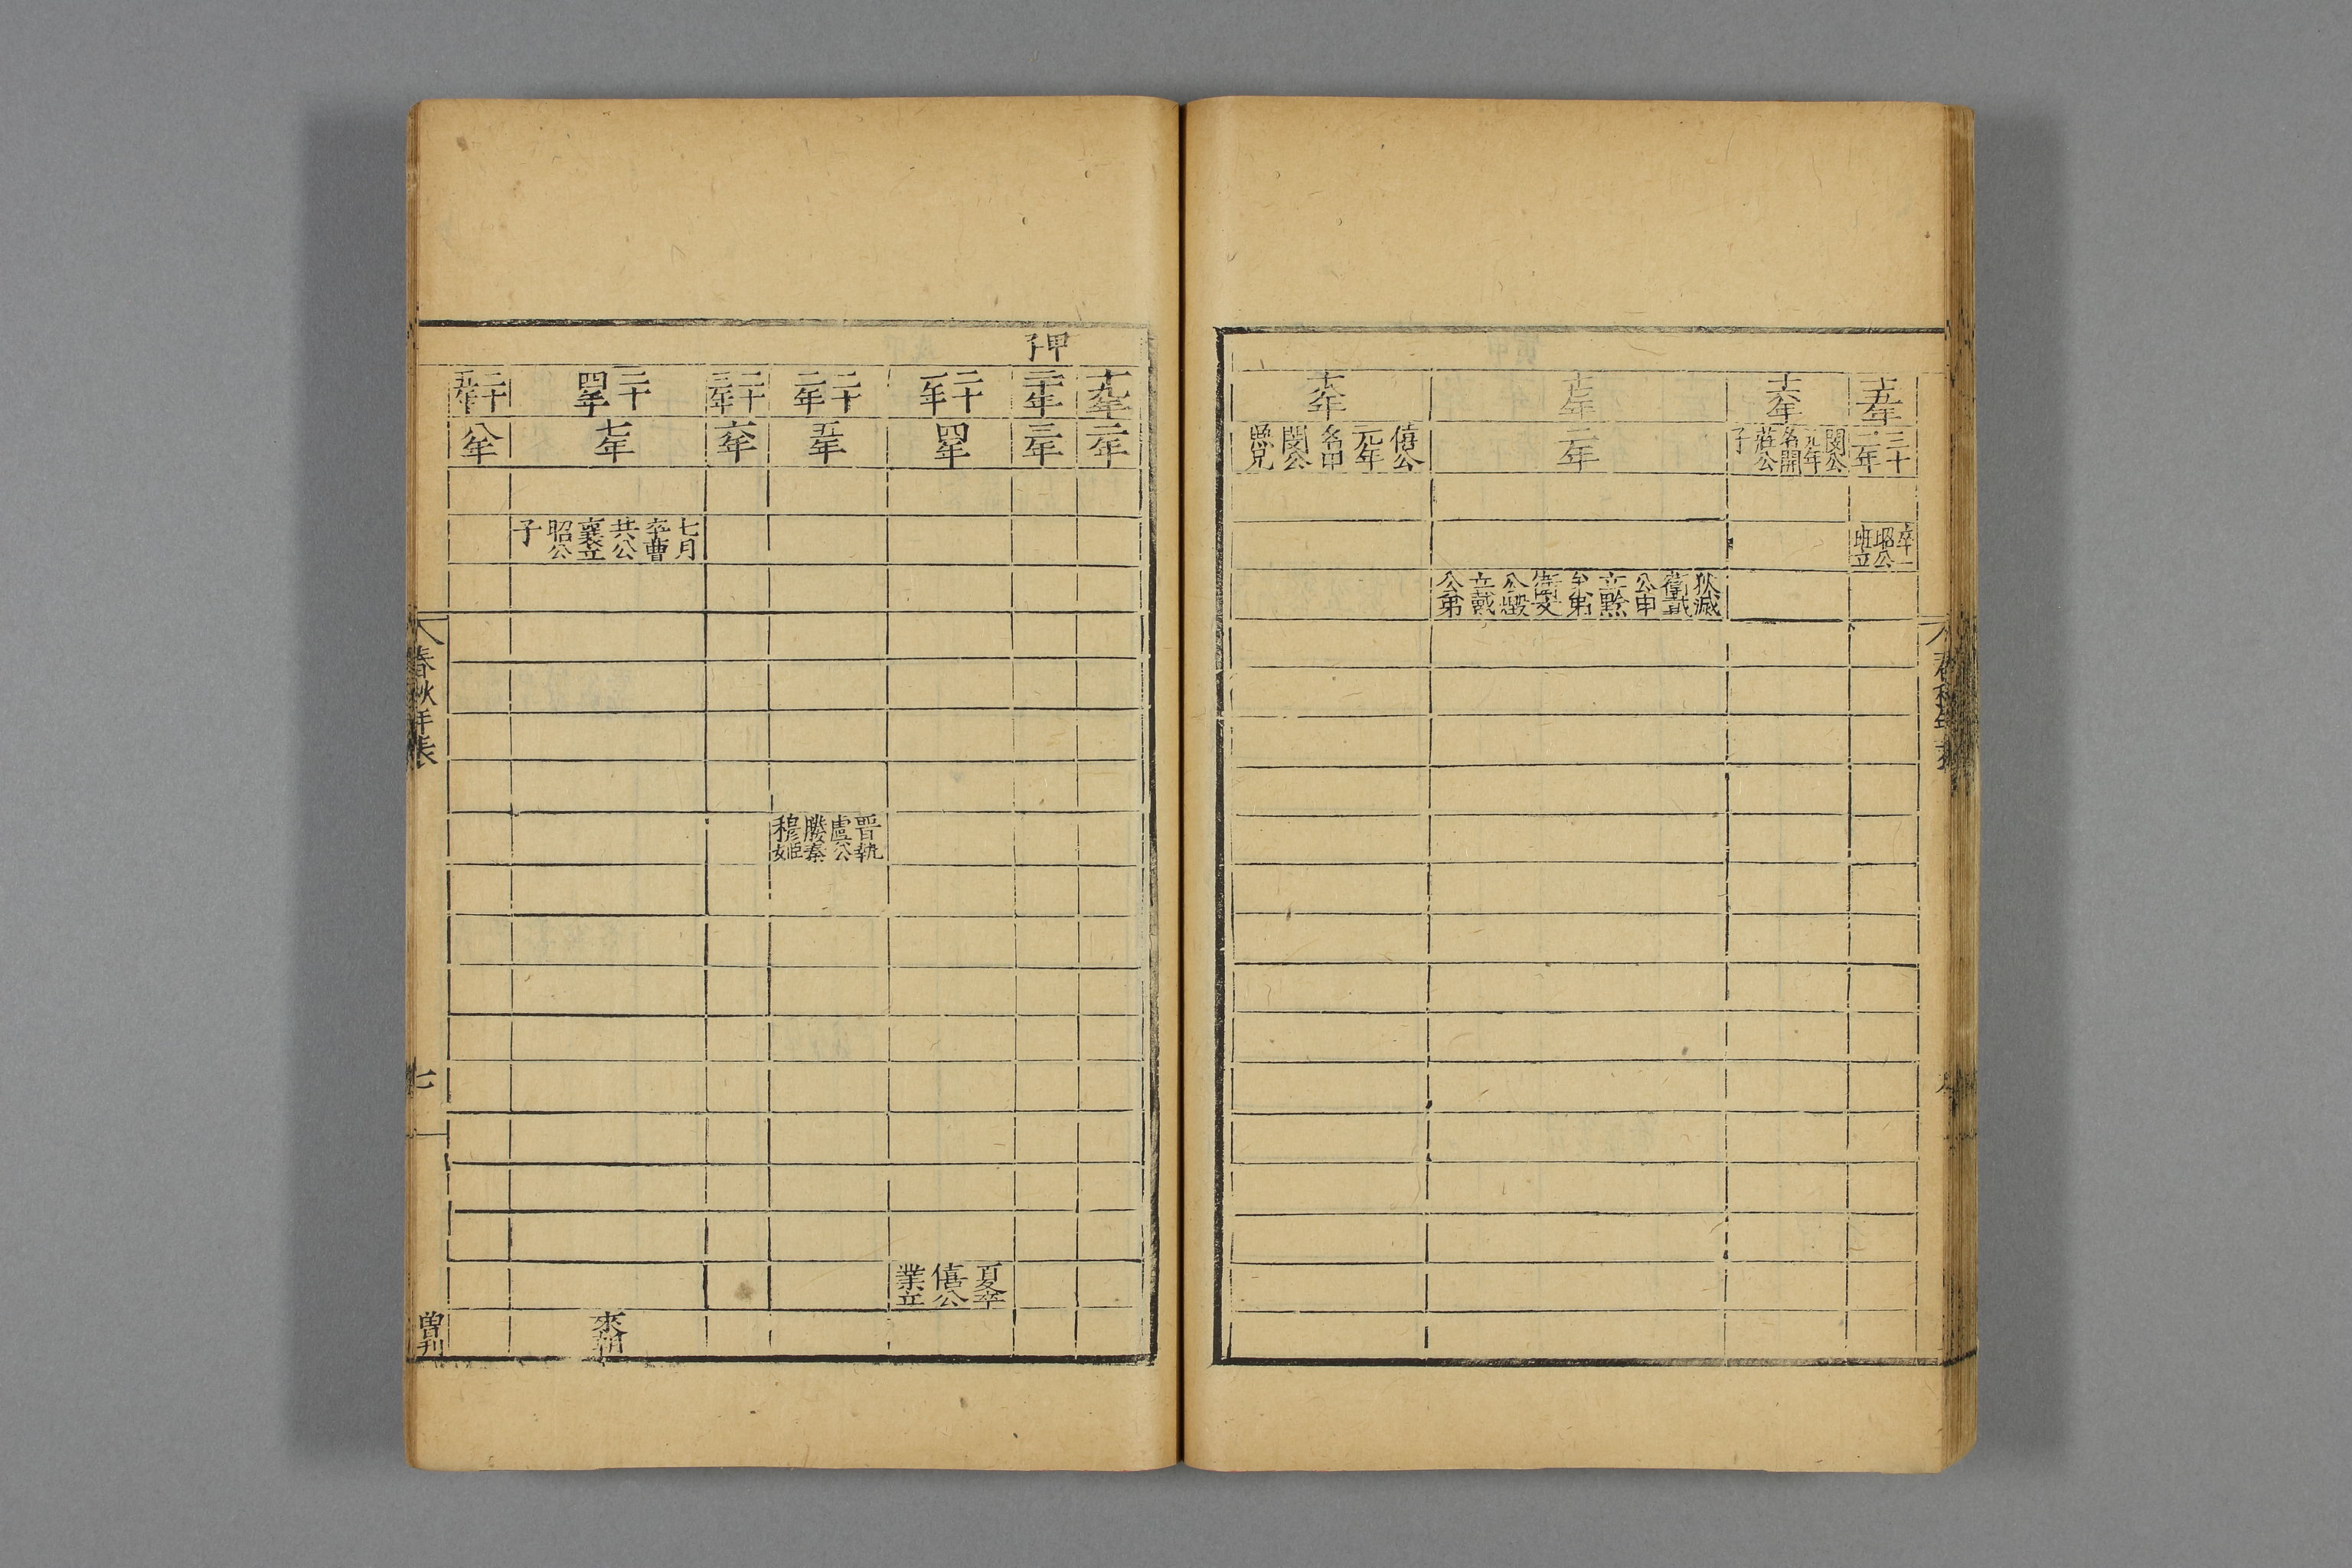 十五年
三十二年
卒昭公班立
十六年
閔公元年名開莊公子
十七年
二年
狄滅衛戴公申立黔牟弟衛文公燬立戴公弟
十八年
僖公元年名申閔公庶兄
十九年
二年
甲子
二十年
三年
二十一年
四年
夏卒僖公業立
二十二年
五年
晋執虞公媵秦穆姬
二十三年
六年
二十四年
七年
七月卒曹共公襄立昭公子
來朝
二十五年
八年
春秋年表
七
曾刊